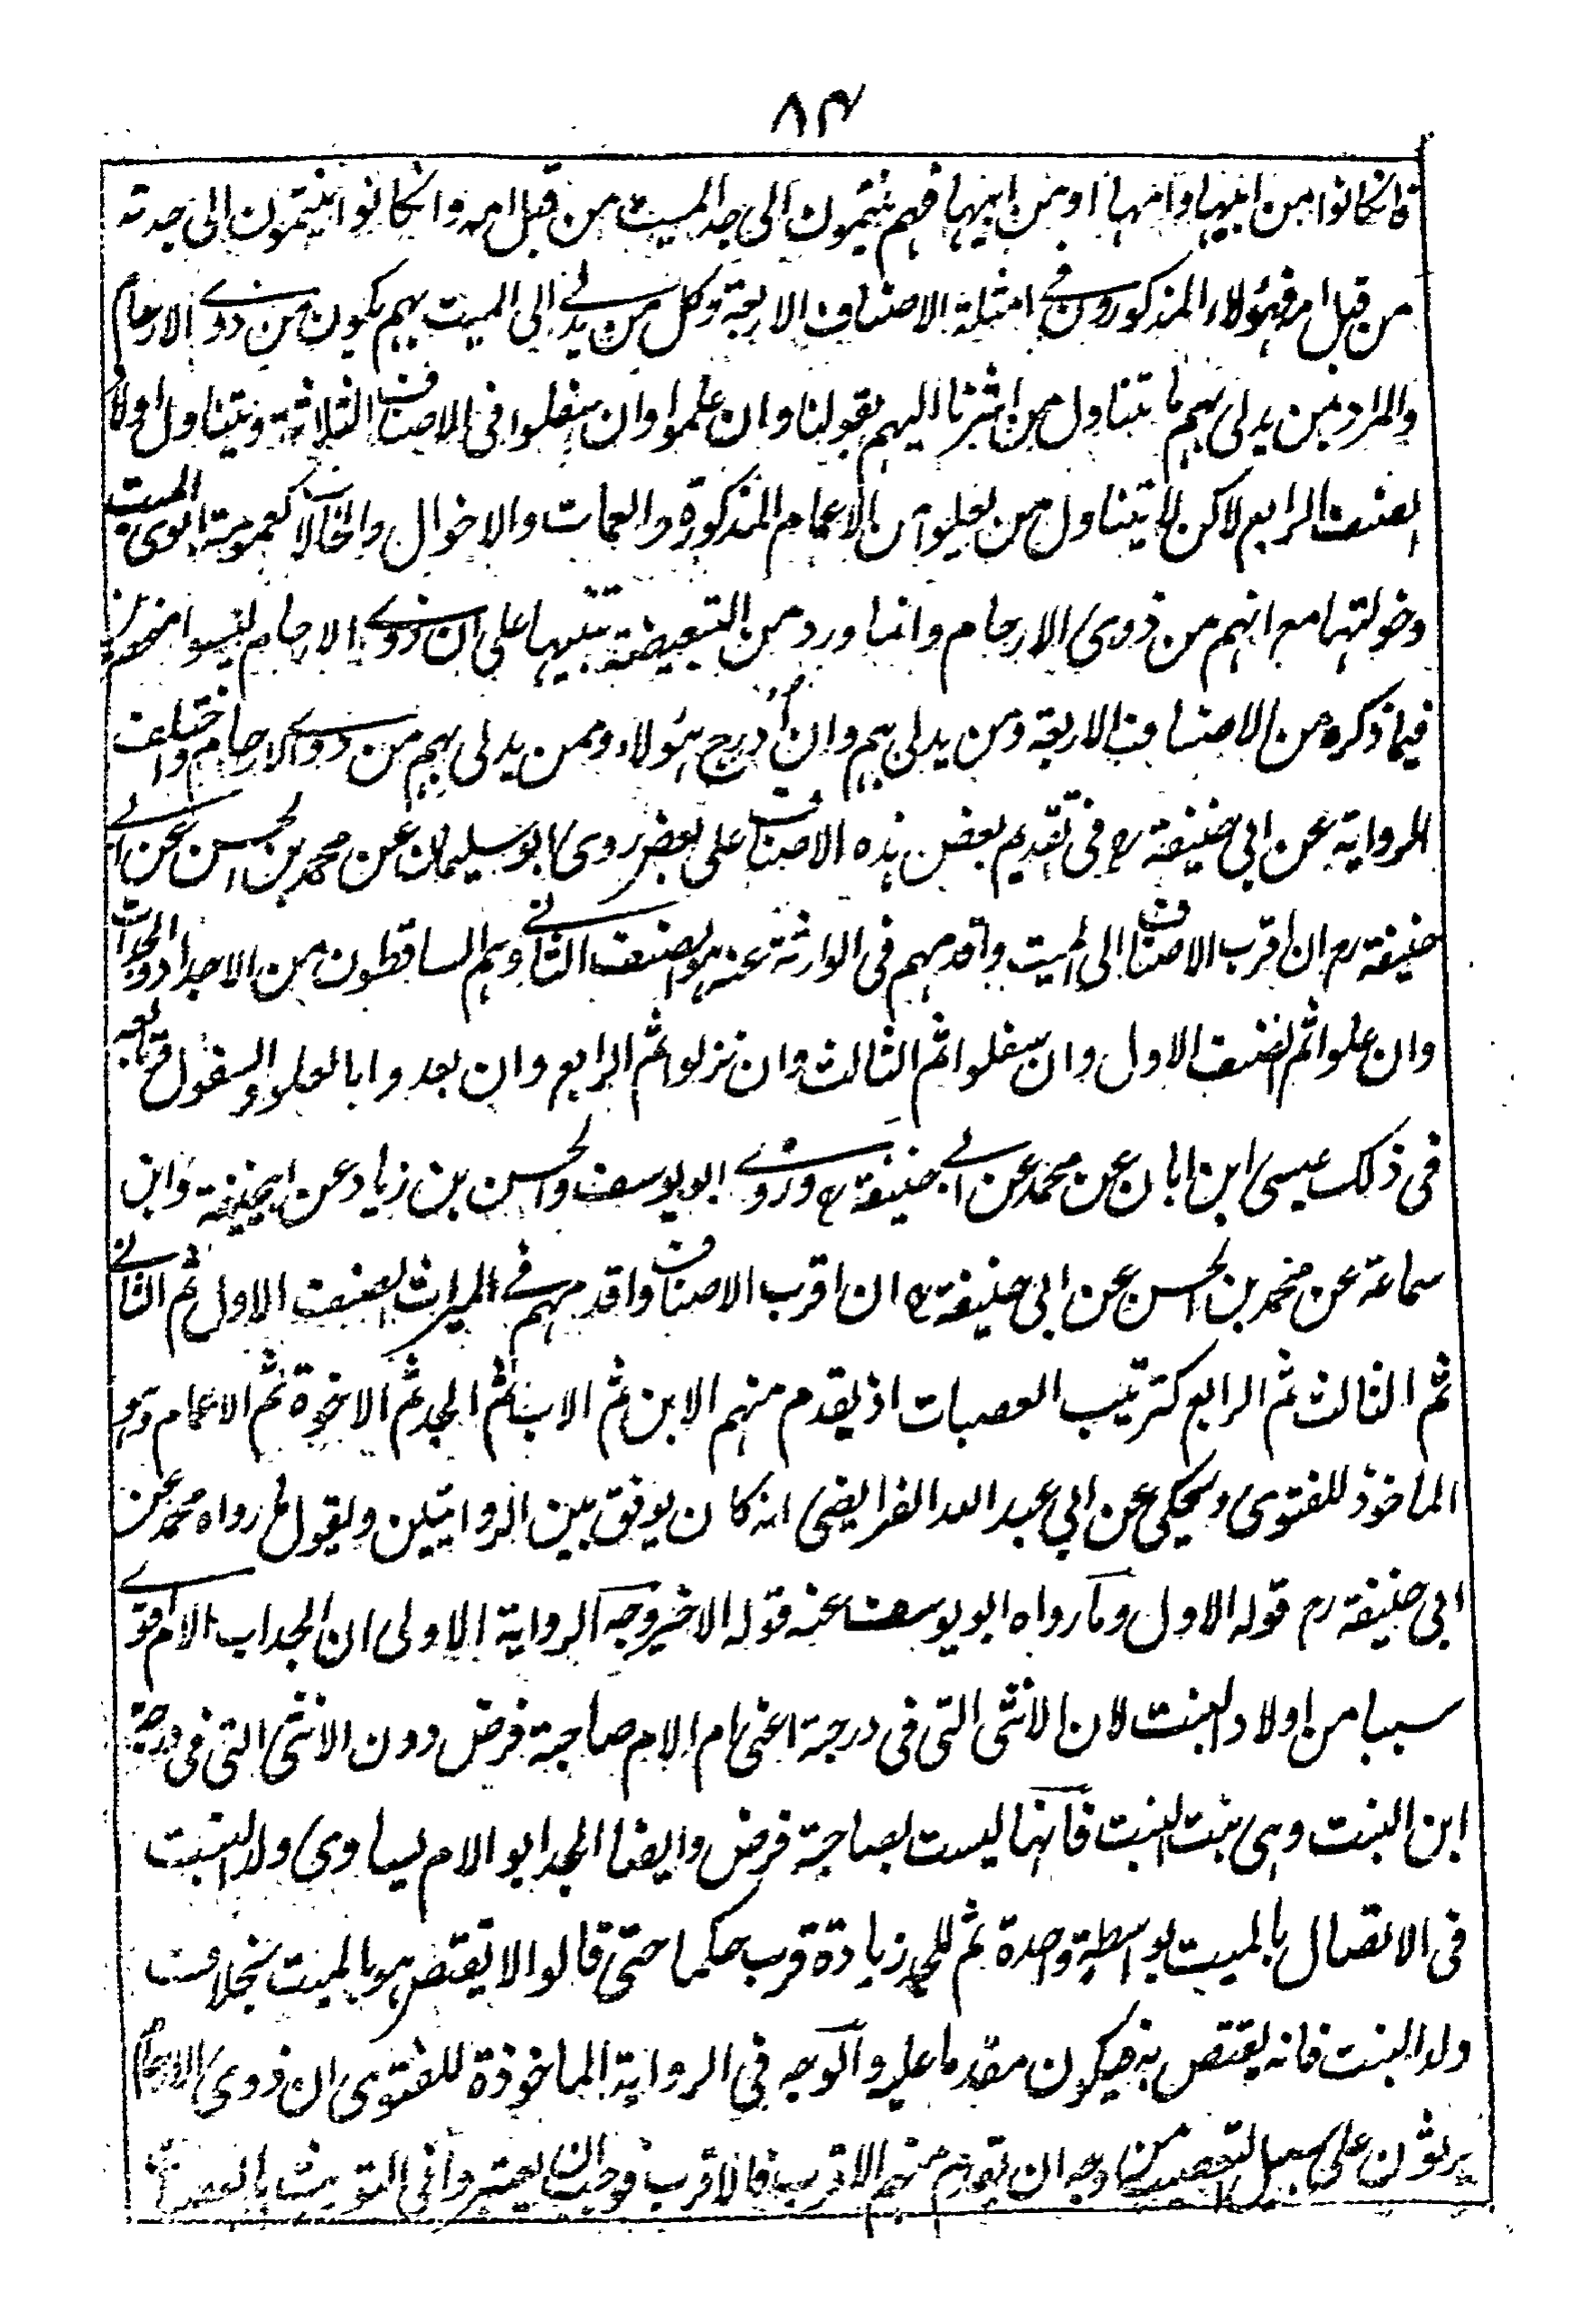 ۸۴
فانكانوا من ابيها وامها او من ابيها فهم ينتمون الى جد الميت من قبل امه وانكانوا ينتمون الى جدته
من قبل امه فهؤلاء المذكورون فى امثلة الاصناف الاربعة وكل من يدلى الى الميت بهم يكون من ذوى الارحام
والمراد بمن يدلى بهم ما يتناول من اشرنا اليهم بقولنا وان علوا وان سفلوا فى الاصناف الثلاثة ويتناول اولاد
الصنف الرابع لاكن لا يتناول من يعلو من الاعمام المذكورة والعمات والاخوال والخالات كعمومة ابوى الميت
وخولتهما مع انهم من ذوى الارحام وانما ورد من التبعيضة تنبيها على ان ذوى الارحام ليسوا منحصرين
فيما ذكره من الاصناف الاربعة ومن يدلى بهم وان ادرج هؤلاء ومن يدلى بهم من ذوى الارحام واختلف
الرواية عن ابى حنيفة رح فى تقديم بعض هذه الاصناف على بعض روى ابو سليمان عن محمد بن الحسن عن ابى
حنيفة رح ان اقرب الاصناف الى الميت واقدمهم فى الوارثة عنه هو الصنف الثانى وهم الساقطون من الاجداد والجدات
وان علوا ثم الصنف الاول وان سفلوا ثم الثالث وان نزلوا ثم الرابع وان بعدوا بالعلو والسفول وتابعه
فى ذلك عيسى ابن ابان عن محمد عن ابى حنيفة رح وروى ابو يوسف والحسن بن زياد عن ابيحنيفة وابن
سماعة عن محمد بن الحسن عن ابى حنيفة رح ان اقرب الاصناف واقدمهم فى الميراث الصنف الاول ثم الثانى
ثم الثالث ثم الرابع كترتيب العصبات اذ يقدم منهم الابن ثم الاب ثم الجد ثم الاخوة ثم الاعمام وهو
الماخوذ للفتوى ويحكى عن ابى عبد الله الفرايضى انه كان يوفق بين الروايتين ويقول ما رواه محمد عن
ابى حنيفة رح قوله الاول وما رواه ابو يوسف عنه قوله الاخير وجه الرواية الاولى ان الجد اب الام اقوى
سببا من اولاد البنت لان الانثى التى فى درجة اعنى ام الام صاحبة فرض دون الانثى التى فى درجة
ابن البنت وهى بنت البنت فانها ليست بصاحبة فرض وايضا الجد ابو الام يساوى ولد البنت
فى الاتصال بالميت بواسطة واحدة ثم للجد زيادة قرب حكما حتى قالوا لا يقتص هو بالميت بخلاف
ولد البنت فانه يقتص به فيكون مقدما عليه والوجه فى الرواية الماخوذة للفتوى ان ذوى الارحام
يرثون على سبيل التعصيب من وجه ان تقديم منهم الاقرب فالاقرب فوجب ان يعتبروا فى التوريث بالعصبات